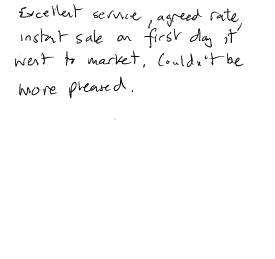 Excellent service, agreed rate,
instant sale on first day it
went to market. Couldn't be
more pleased.